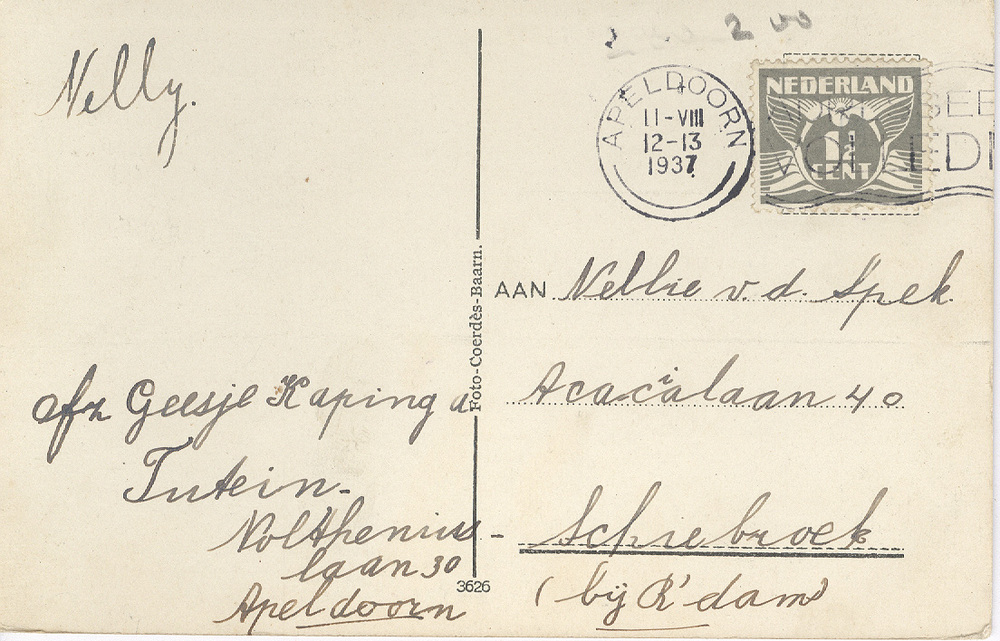 Nelly.
afz Geesje Kapinga
Tutein-
Nolthenius-
laan 30
Apeldoorn
Foto-Coerdès-Baarn.
3626
2 00
APELDOORN
11-VIII
12-13
1937
NEDERLAND
1½
CENT
AAN Nellie v.d. Spek
Acacialaan 40
Schiebroek
(bij R'dam)